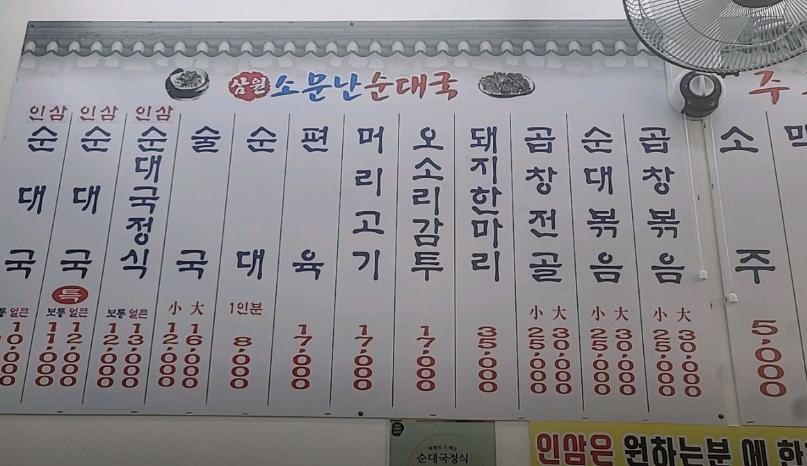 삼원 소문난순대국
인삼 순대국 보통 얼큰 10,000
인삼 순대국 특 보통 얼큰 11,000 12,000
인삼 순대국정식 보통 얼큰 12,000 13,000
술국 小 大 12,000 16,000
순대 1인분 8,000
편육 17,000
머리고기 17,000
오소리감투 17,000
돼지한마리 35,000
곱창전골 小 大 25,000 30,000
순대볶음 小 大 25,000 30,000
곱창볶음 小 大 25,000 30,000
주
소주 5,000
순대국정식
인삼은 원하는분에 한